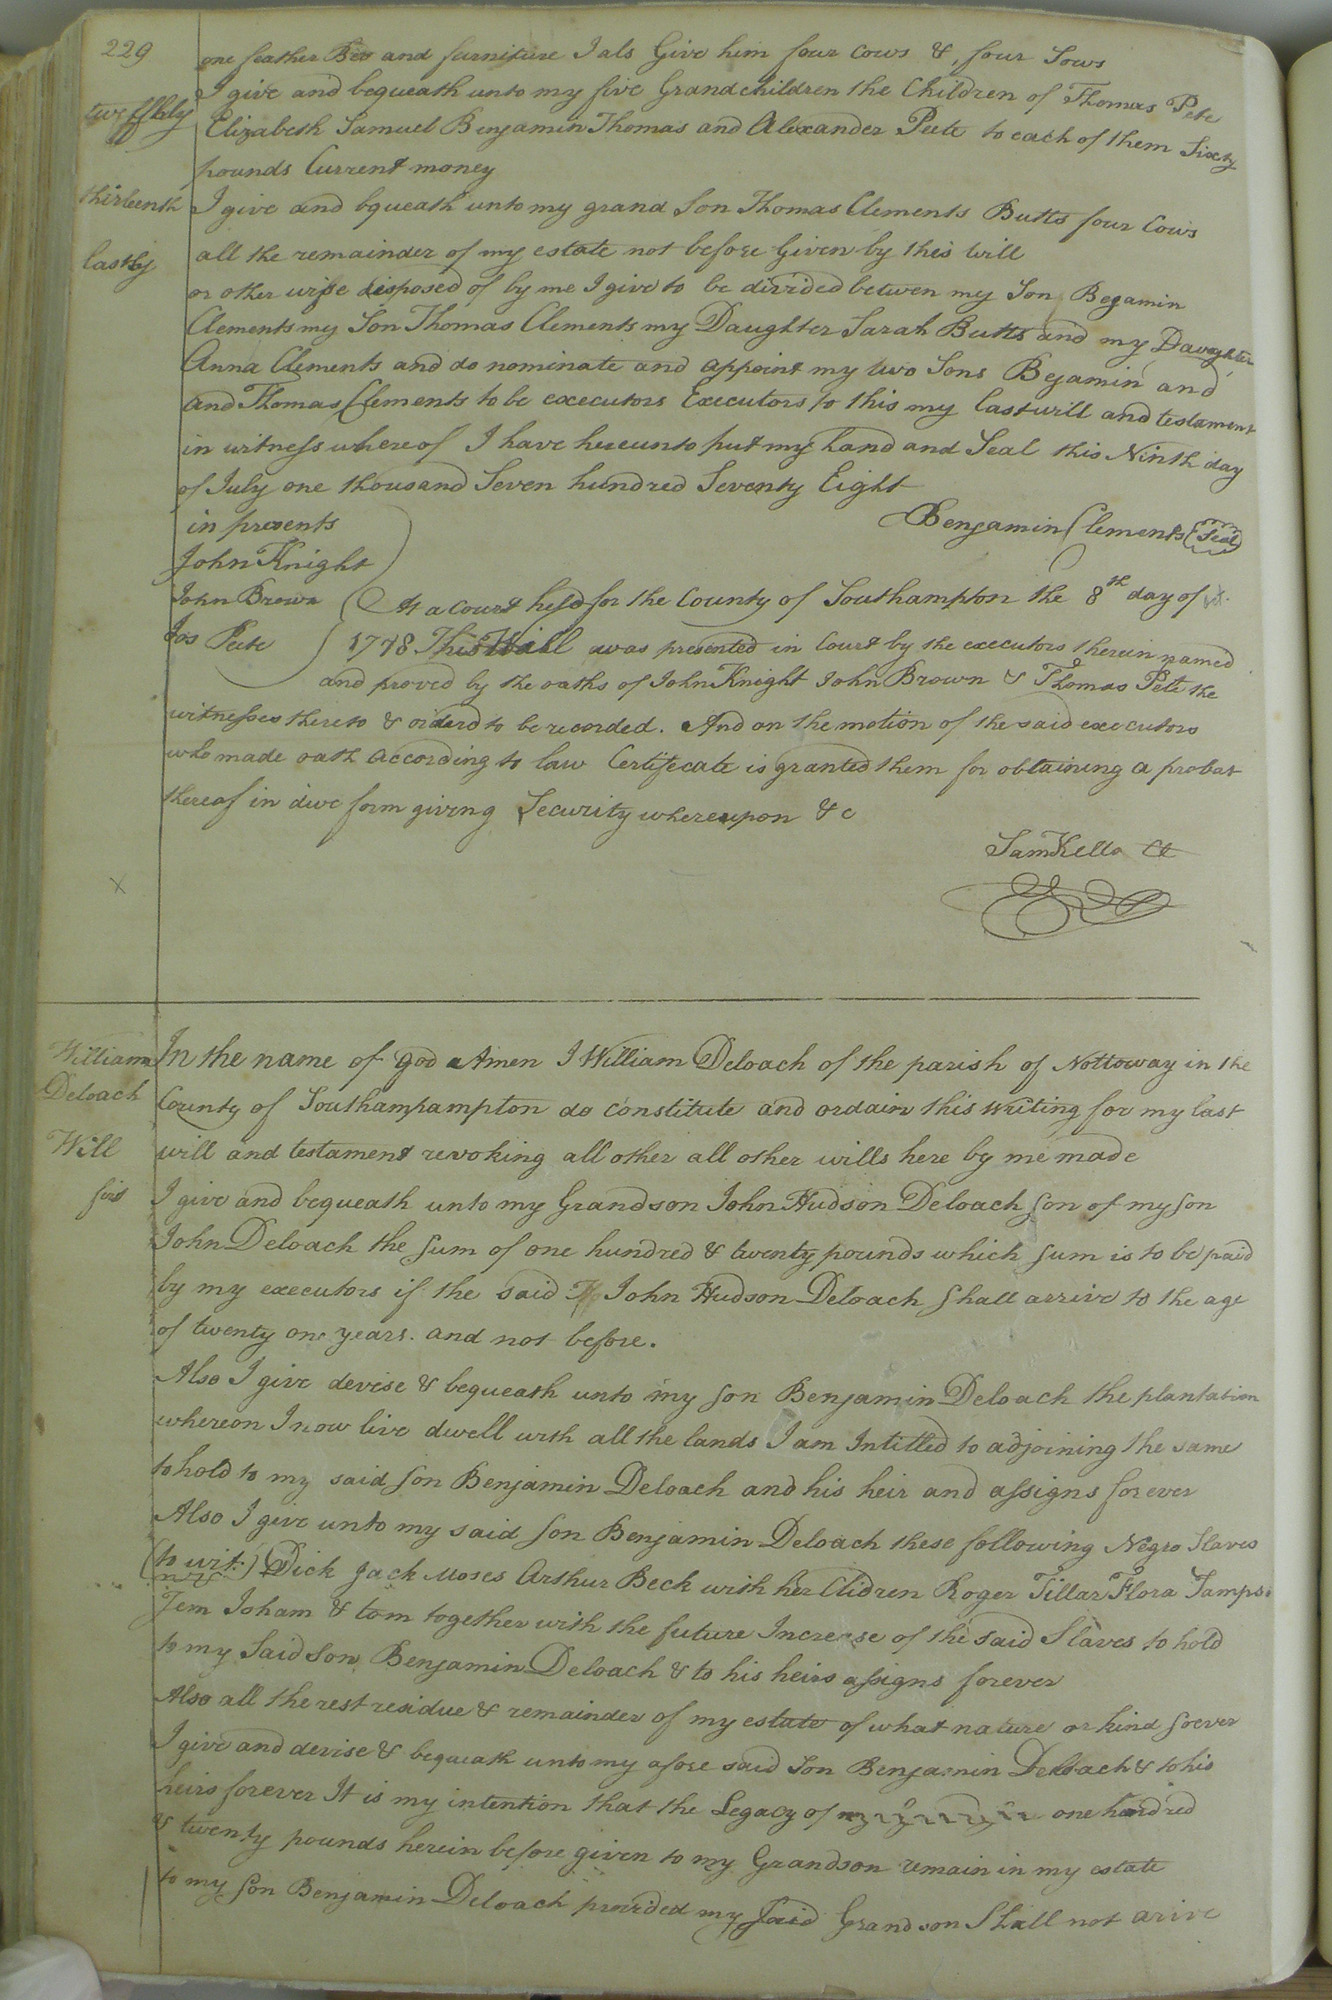 229
one feather Bed and furniture I als Give him four Cows & four Sows
twelfthly
I give and bequeath unto my five Grandchildren the Children of Thomas Pete
Elizabeth Samuel Benjamin Thomas and Alexander Peete to each of them Sixty
pounds Current money
thirteenth
I give and bqueath unto my grand Son Thomas Clements Butts four Cows
lastly
all the remainder of my estate not before Given by this Will
or other wise disposed of by me I give to be divided betwen my Son Begamin
Clements my Son Thomas Clements my Daughter Sarah Butts and my Daughter
Anna Clements and do nominate and appoint my two Sons Bejamin and
and Thomas Clements to be executors Executors to this my last will and testament
in witness whereof I have hereunto put my hand and Seal this Ninth day
of July one thousand Seven hundred Seventy Eight
in presents
Benjamin Clements Seal
John Knight
John Brown
Jos Peete
At a Court held for the County of Southampton the 8th day of
1778 This Will was presented in Court by the executors therein named
and proved by the oaths of John Knight John Brown & Thomas Pete the
witnesses thereto & orderd to be recorded. And on the motion of the said executors
who made oath according to law Certifecate is granted them for obtaining a probat
thereof in due form giving Security whereupon &c
Sam Kello Ct
X
William
Deloach
Will
In the name of god Amen I William Deloach of the parish of Nottoway in the
County of Southamphampton do constitute and ordain this writing for my last
will and testament revoking all other all other wills here by me made
first
I give and bequeath unto my Grandson John Hudson Deloach son of my son
John Deloach the sum of one hundred & twenty pounds which sum is to be paid
by my executors if the said John Hudson Deloach shall arrive to the age
of twenty one years. and not before.
Also I give devise & bequeath unto my son Benjamin Deloach the plantation
whereon I now live dwell with all the lands I am Intitled to adjoining the same
to hold to my said son Benjamin Deloach and his heir and assigns forever
Also I give unto my said son Benjamin Deloach these following Negro Slaves
(to wit) Dick Jack Moses Arthur Beck with her Clidren Roger Tillar Flora Samps.
Jem Joham & tom together with the future Increase of the said Slaves to hold
to my Said Son Benjamin Deloach & to his heirs assigns forever
Also all the rest residue & remainder of my estate of what nature or kind soever
I give and devise & bequeath unto my afore said Son Benjamin Deloach & to his
heirs forever It is my intention that the Legacy of one hundred
& twenty pounds herein before given to my Grandson remain in my estate
to my son Benjamin Deloach provided my said Grandson Shall not arive